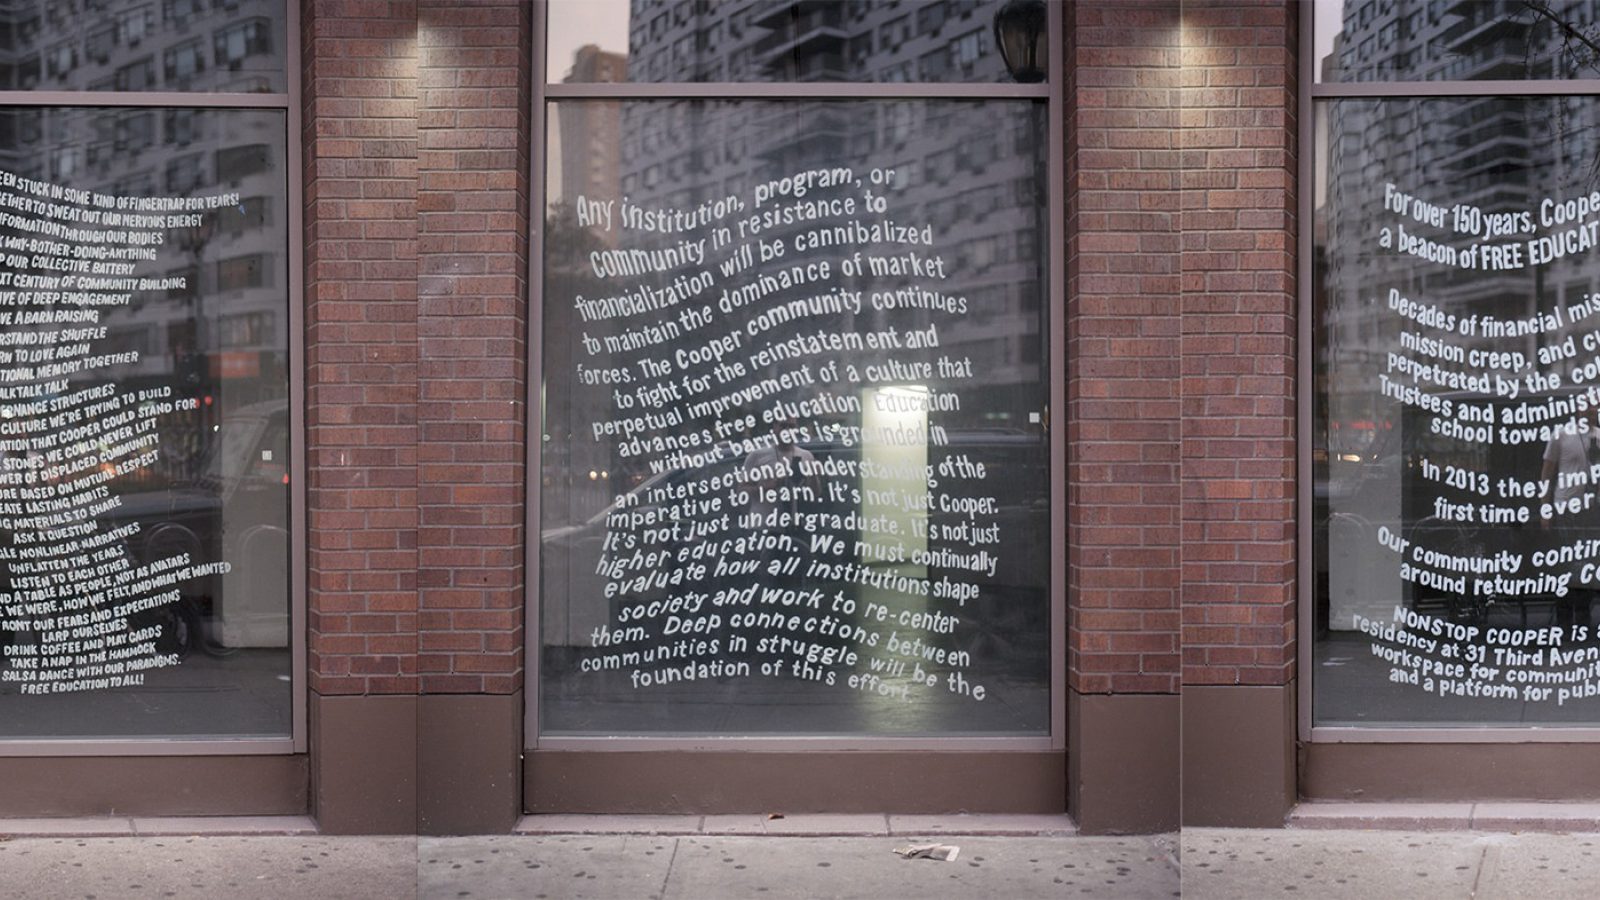 EEN STUCK IN SOME KIND OF FINGERTRAP FOR TEARS!
GETHER TO SWEAT OUT OUR NERVOUS ENERGY
NFORMATION THROUGH OUR BODIES
K WHY-BOTHER-DOING-ANYTHING
P OUR COLLECTIVE BATTERY
EXT CENTURY OF COMMUNITY BUILDING
IVE OF DEEP ENGAGEMENT
VE A BARN RAISING
RSTAND THE SHUFFLE
RN TO LOVE AGAIN
TIONAL MEMORY TOGETHER
ALK TALK TALK
ERNANCE STRUCTURES
CULTURE WE'RE TRYING TO BUILD
ATION THAT COOPER COULD STAND FOR
STONES WE COULD NEVER LIFT
WER OF DISPLACED COMMUNITY
URE BASED ON MUTUAL RESPECT
EATE LASTING HABITS
G MATERIALS TO SHARE
ASK A QUESTION
GLE NONLINEAR NARRATIVES
UNFLATTEN THE YEARS
LISTEN TO EACH OTHER
ND A TABLE AS PEOPLE, NOT AS AVATARS
E WE WERE, HOW WE FELT, AND WHAT WE WANTED
RONT OUR FEARS AND EXPECTATIONS
LARP OURSELVES
DRINK COFFEE AND PLAY CARDS
TAKE A NAP IN THE HAMMOCK
SALSA DANCE WITH OUR PARADIGMS.
FREE EDUCATION TO ALL!
Any institution, program, or
community in resistance to
financialization will be cannibalized
to maintain the dominance of market
forces. The Cooper community continues
to fight for the reinstatement and
perpetual improvement of a culture that
advances free education. Education
without barriers is grounded in
an intersectional understanding of the
imperative to learn. It's not just Cooper.
It's not just undergraduate. It's not just
higher education. We must continually
evaluate how all institutions shape
society and work to re-center
them. Deep connections between
communities in struggle will be the
foundation of this effort.
For over 150 years, Coope
a beacon of FREE EDUCAT
Decades of financial mis
mission creep, and c
perpetrated by the col
Trustees and administ
school towards
In 2013 they imp
first time ever
Our community contin
around returning C
NONSTOP COOPER is a
residency at 31 Third Aven
workspace for communit
and a platform for publ